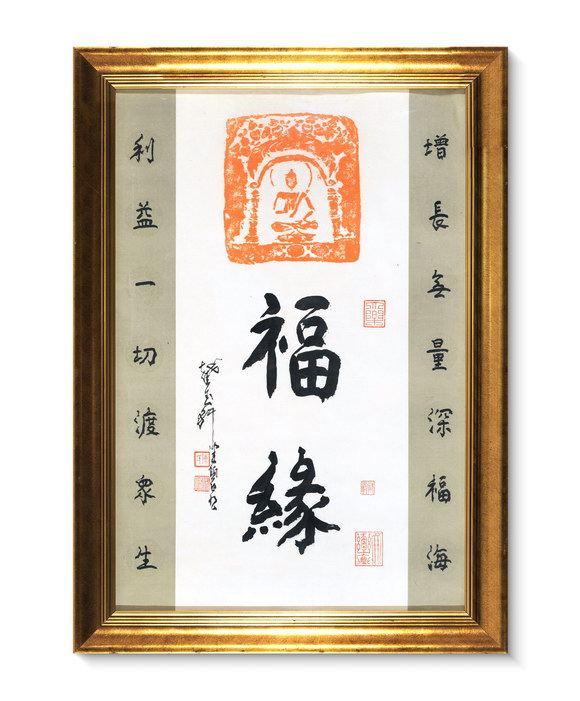 增長無量深福海
福緣
利益一切渡眾生